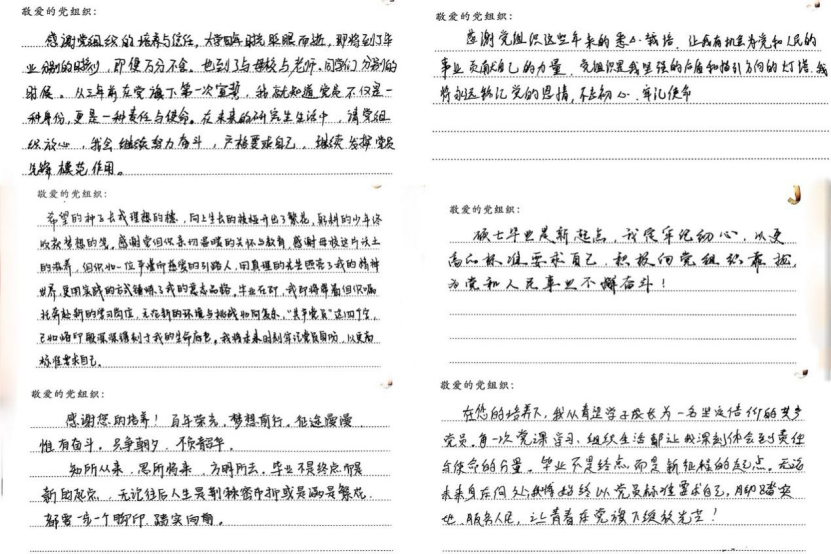 敬爱的党组织：
感谢党组织的培养与信任，大学四年时光眨眼而逝，即将到了毕
业分别的时刻，即便万分不舍，也到了与母校与老师、同学们分别的
时候。从三年前在党旗下第一次宣誓，我就知道党员不仅是一
种身份，更是一种责任与使命。在未来的研究生生活中，请党组
织放心，我会继续努力奋斗，严格要求自己，继续发挥党员
先锋模范作用。
敬爱的党组织：
感谢党组织这些年来的悉心栽培，让我有机会为党和人民的
事业贡献自己的力量，党组织是我坚强的后盾和指引方向的灯塔，我
将永远铭记党的恩情，不忘初心、牢记使命
敬爱的党组织：
希望的种子长成理想的穗，向上生长的枝桠开出了繁花，躬耕的少年终
收获梦想的光。感谢党组织亲切温暖的关怀与教育，感谢母校这片沃土
的滋养，组织如一位严谨而慈爱的引路人，用真理的光芒照亮了我的精神
世界，更用实践的方式锤炼了我的意志品格。毕业在即，我即将带着组织嘱
托奔赴新的学习岗位，无论新的环境与挑战如何复杂，“共产党员”这四个字，
已如烙印般深深镌刻于我的生命底色。我将未来时刻牢记党员身份，以更高
标准要求自己。
敬爱的党组织：
硕士毕业是新起点，我定牢记初心，以更
高的标准要求自己，积极向党组织靠拢，
为党和人民事业不懈奋斗！
敬爱的党组织：
感谢您的培养！百年荣光，梦想前行，征途漫漫，
惟有奋斗。只争朝夕，不负韶华。
知所从来，思所将来，方明所去，毕业不是终点而是
新的起点，无论往后人生是荆棘密布抑或是满是繁花，
都要一步一个脚印，踏实向前。
敬爱的党组织：
在您的培养下，我从青涩学子成长为一名坚定信仰的共产
党员，每一次党课学习、组织生活都让我深刻体会到责任
与使命的分量。毕业不是终点而是新征程的起点。无论
未来身在何处，我将始终以党员标准要求自己，脚踏实
地、服务人民，让青春在党旗下绽放光芒！